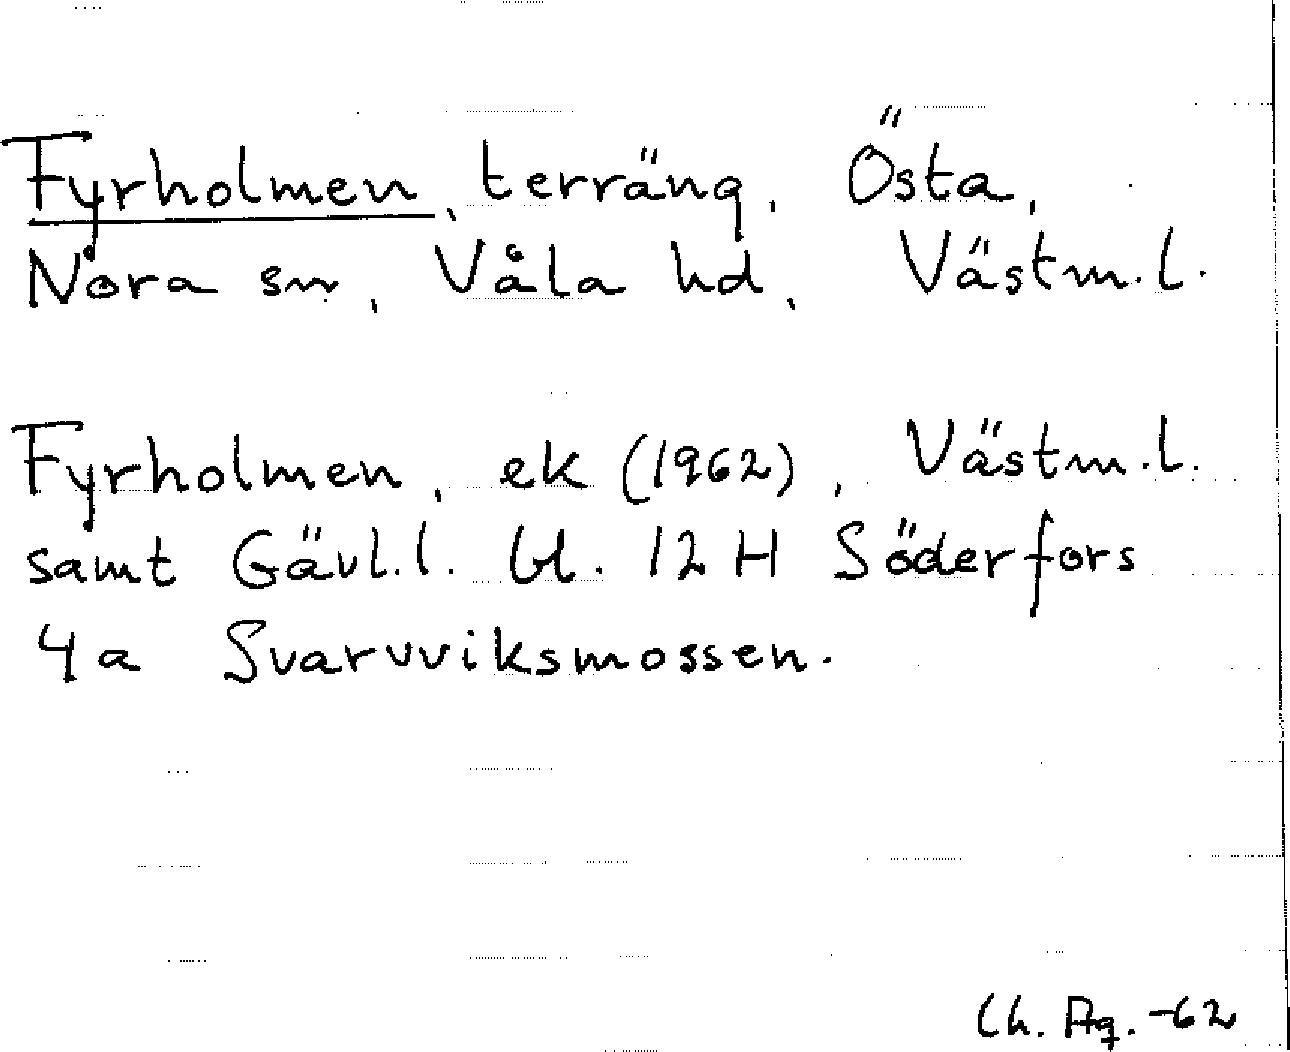 Fyrholmen, terräng, Östa,
Nora sn, Våla hd, Västm.l.
Fyrholmen, ek (1962), Västm.l.
samt Gävl.l. bl. 12 H Söderfors
4a Svarvviksmossen.
Ch. Ag. -62